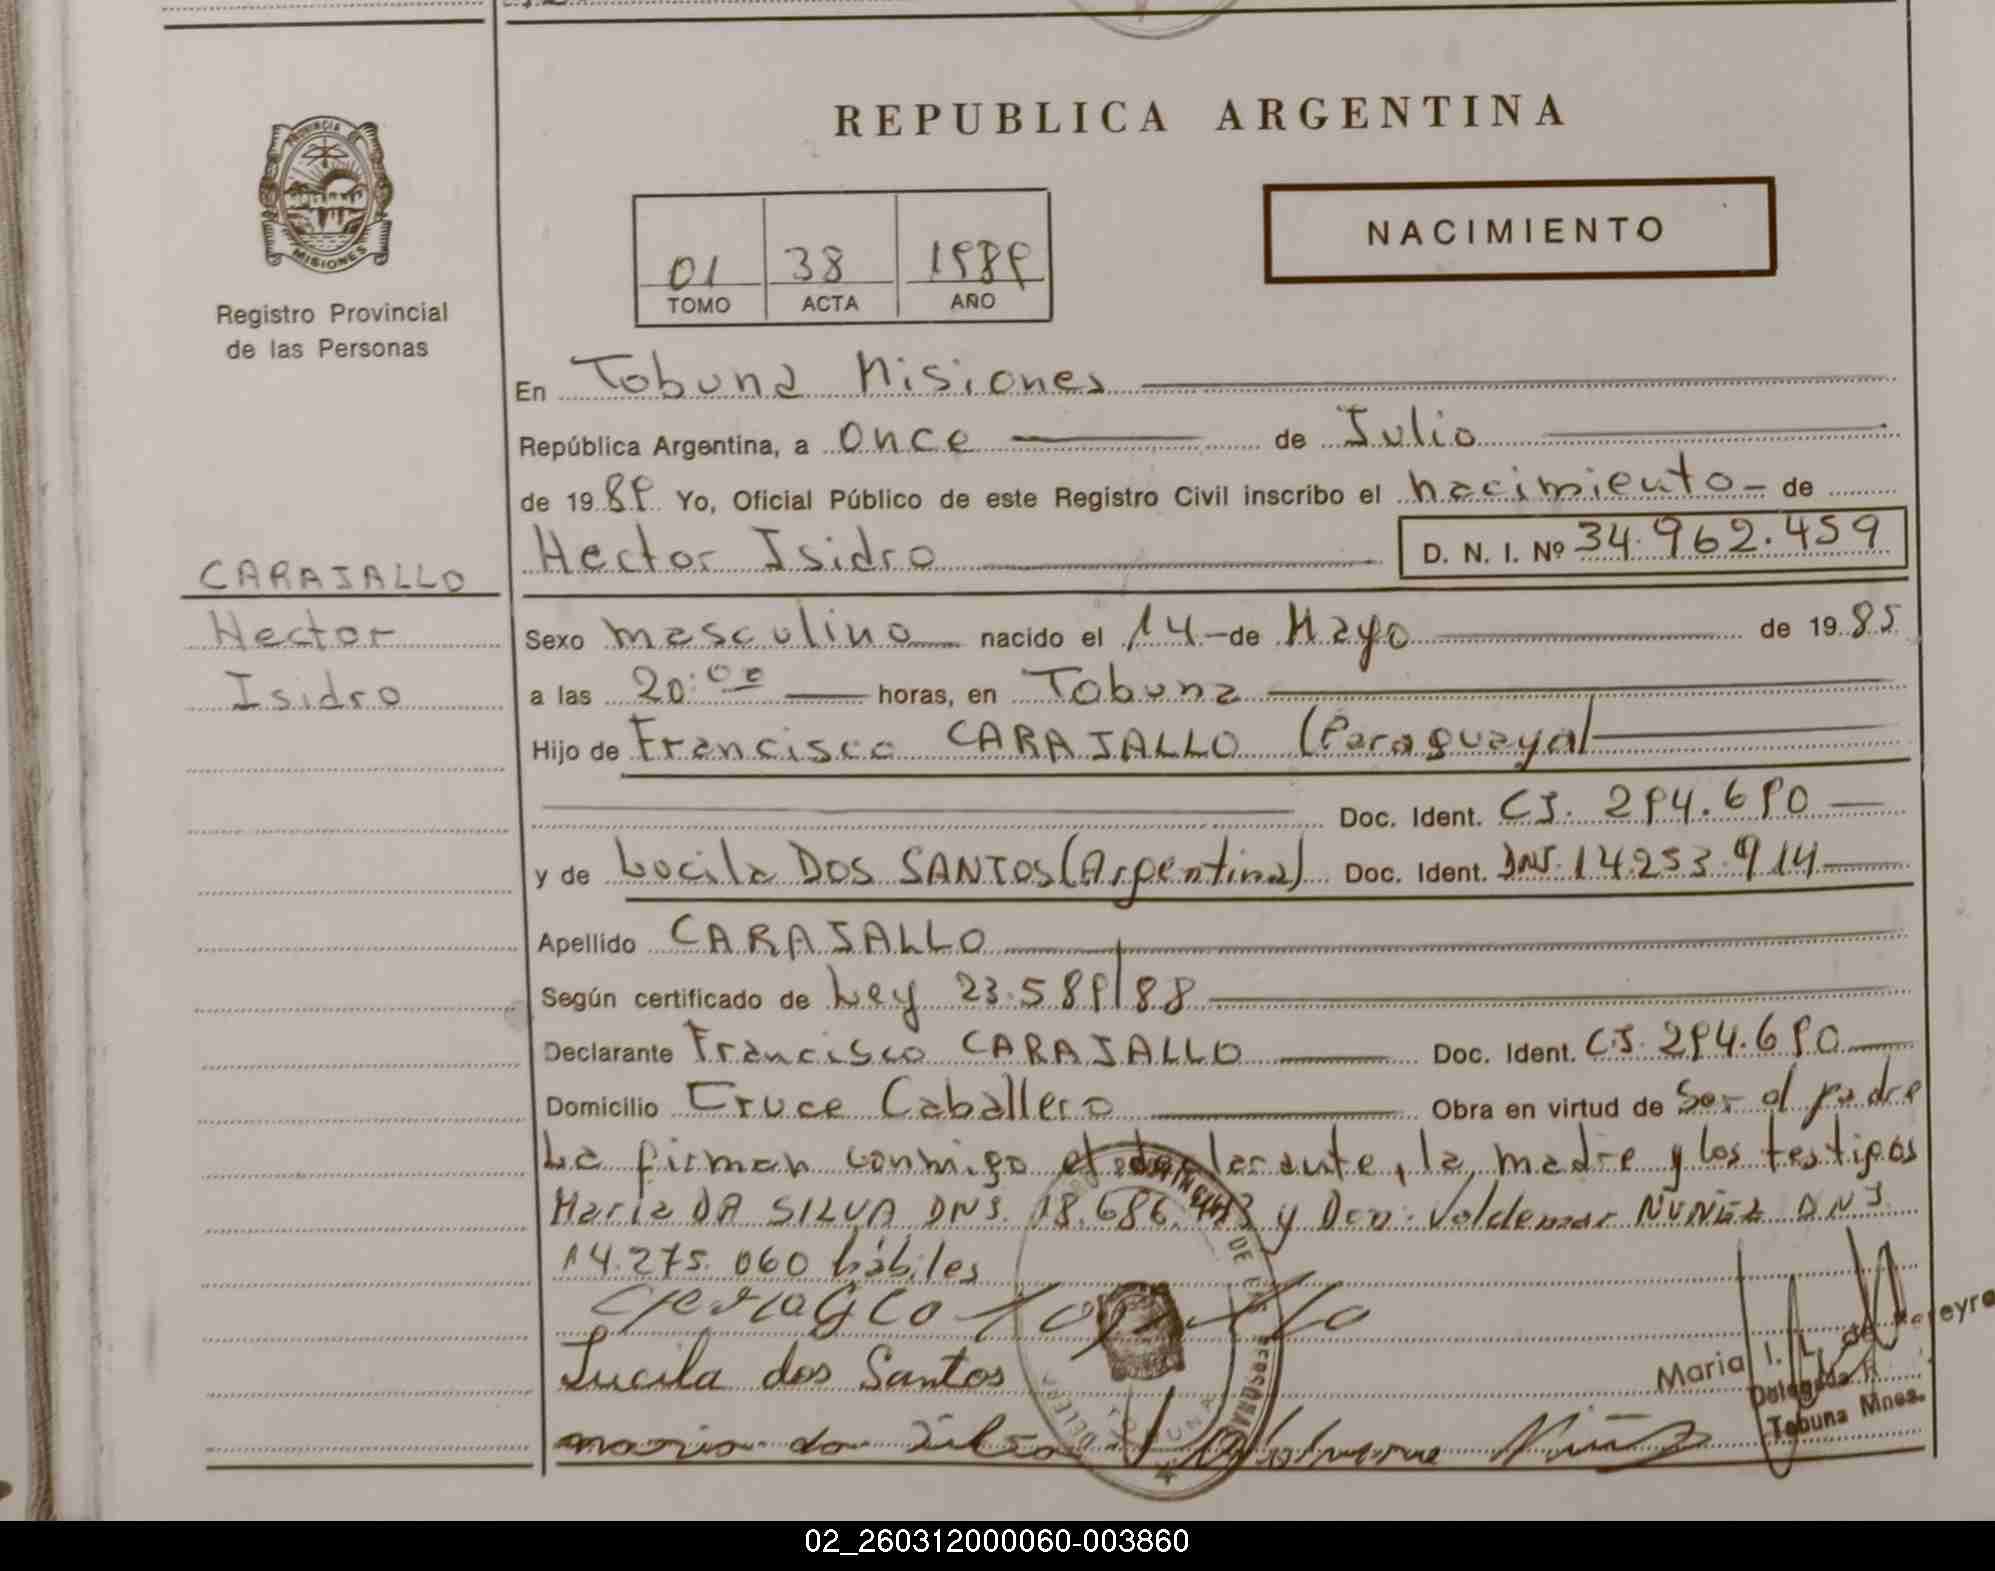 REPUBLICA ARGENTINA
PROVINCIA
MISIONES
Registro Provincial
de las Personas
NACIMIENTO
01 38 1989
TOMO ACTA AÑO
En Tobuna Misiones
República Argentina, a once de Julio
de 1989 Yo, Oficial Público de este Registro Civil inscribo el nacimiento de
Hector Isidro D. N. I. Nº 34.962.459
CARAJALLO
Hector
Isidro
Sexo masculino nacido el 14 de Mayo de 1985
a las 20:00 horas, en Tobuna
Hijo de Francisco CARAJALLO (Paraguayo)
Doc. Ident. CI. 294.690
y de Lucila DOS SANTOS (Argentina) Doc. Ident. DNI. 14.253.914
Apellido CARAJALLO
Según certificado de Ley 23.589/88
Declarante Francisco CARAJALLO Doc. Ident. CI. 294.690
Domicilio Cruce Caballero Obra en virtud de Ser el padre
La firman conmigo el declarante, la madre y los testigos
Maria DA SILVA DNI. 18.686. y Don Valdemar NUÑEZ DNI
14.275.060 hábiles
Lucila dos Santos
maria da Silva
Maria I. L. de Pereyra
Delegada
Tobuna Mnes.
02_260312000060-003860